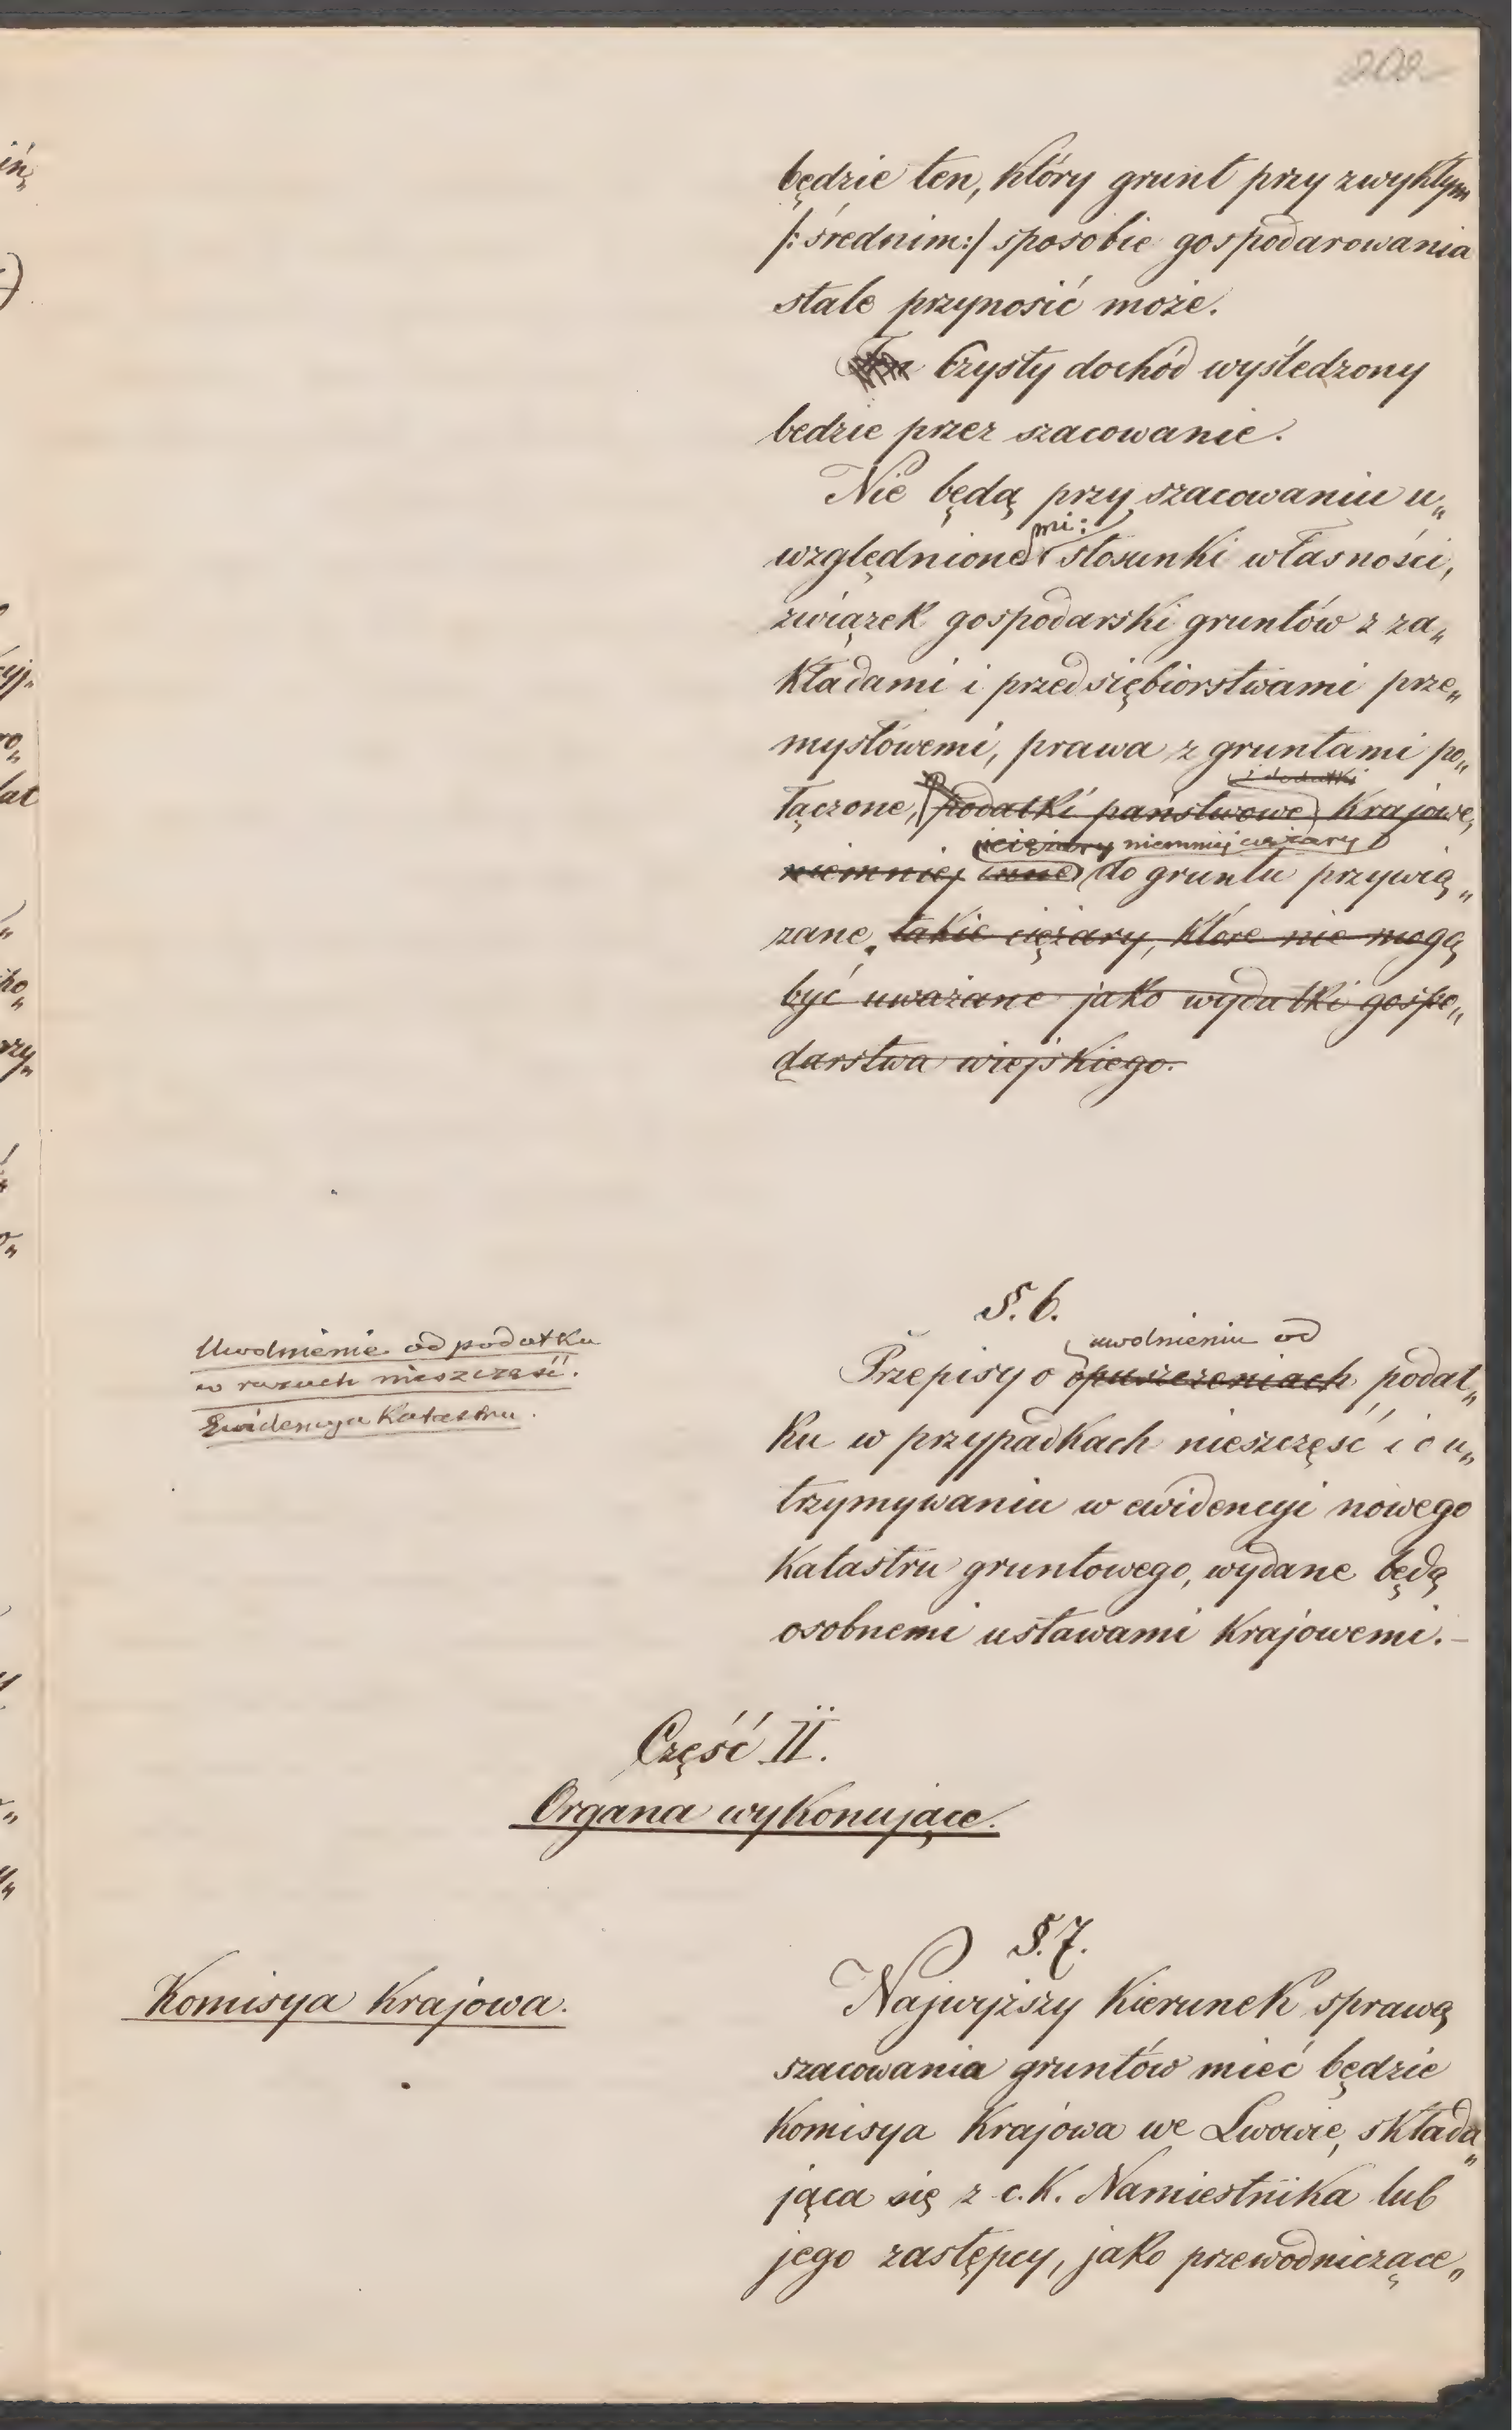 202
będzie ten, który grunt przy zwykłym
/: średnim :/ sposobie gospodarowania
stale przynosić może.
Czysty dochód wyśledzony
bedzie przez szacowanie.
Nie będą przy szacowaniu u„
mi:
względnione stosunki własności,
związek gospodarski gruntów z za„
kładami i przedsiębiorstwami prze„
mysłowemi, prawa z gruntami po„
i dodatki
łączone, podatki państwowe krajowe,
i ciężary niemniej ciężary
niemniej inne do gruntu przywią„
zane. takie ciężary, które nie mogą
być uważane jako wydatki gospo„
darstwa wiejskiego.
§. 6.
Uwolnienie od podatku
w razach nieszczęść.
Ewidencya Katastru.
uwolnieniu od
Przepisy o opuszczeniach podat„
ku w przypadkach nieszczęść i o u„
trzymywaniu w ewidencyi nowego
Katastru gruntowego, wydane będą
osobnemi ustawami krajowemi.–
Część II.
Organa wykonujące.
§. 7.
Komisya Krajowa.
Najwyższy kierunek sprawą
szacowania gruntów mieć będzie
Komisya Krajowa we Lwowie, składa„
jąca się z c. K. Namiestnika lub
jego zastępcy, jako przewodniczące„